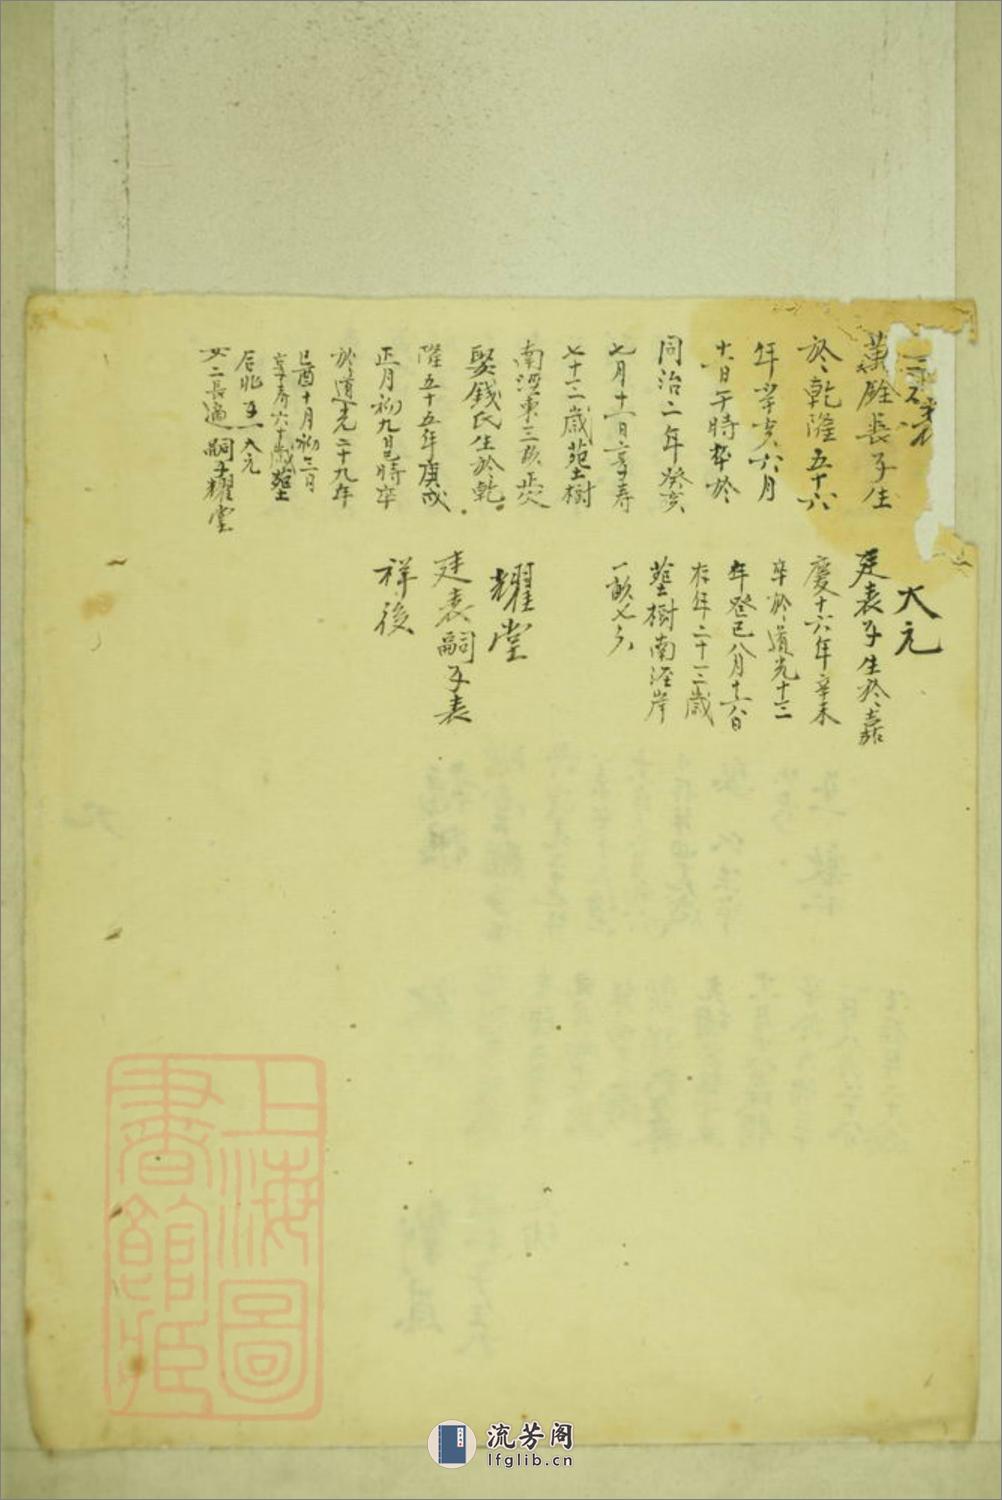 建表
萬餘長子生
於乾隆五十六
年辛亥六月
十六日午時卒於
同治二年癸亥
七月十二日享壽
七十三歲葬土樹
南涇東三畝正穴
娶錢氏生於乾
隆五十五年庚戌
正月初九日巳時卒
於道光二十九年
己酉十月初三日
享壽六十歲葬
合兆子一大元
女二長適 嗣子耀堂
大元
建表子生於嘉
慶十六年辛未
卒於道光十三
年癸巳八月十六日
存年二十三歲
葬樹南涇岸
一畝七分
耀堂
建表嗣子表
祥後
上海圖
書館藏
流芳阁
lfglib.cn